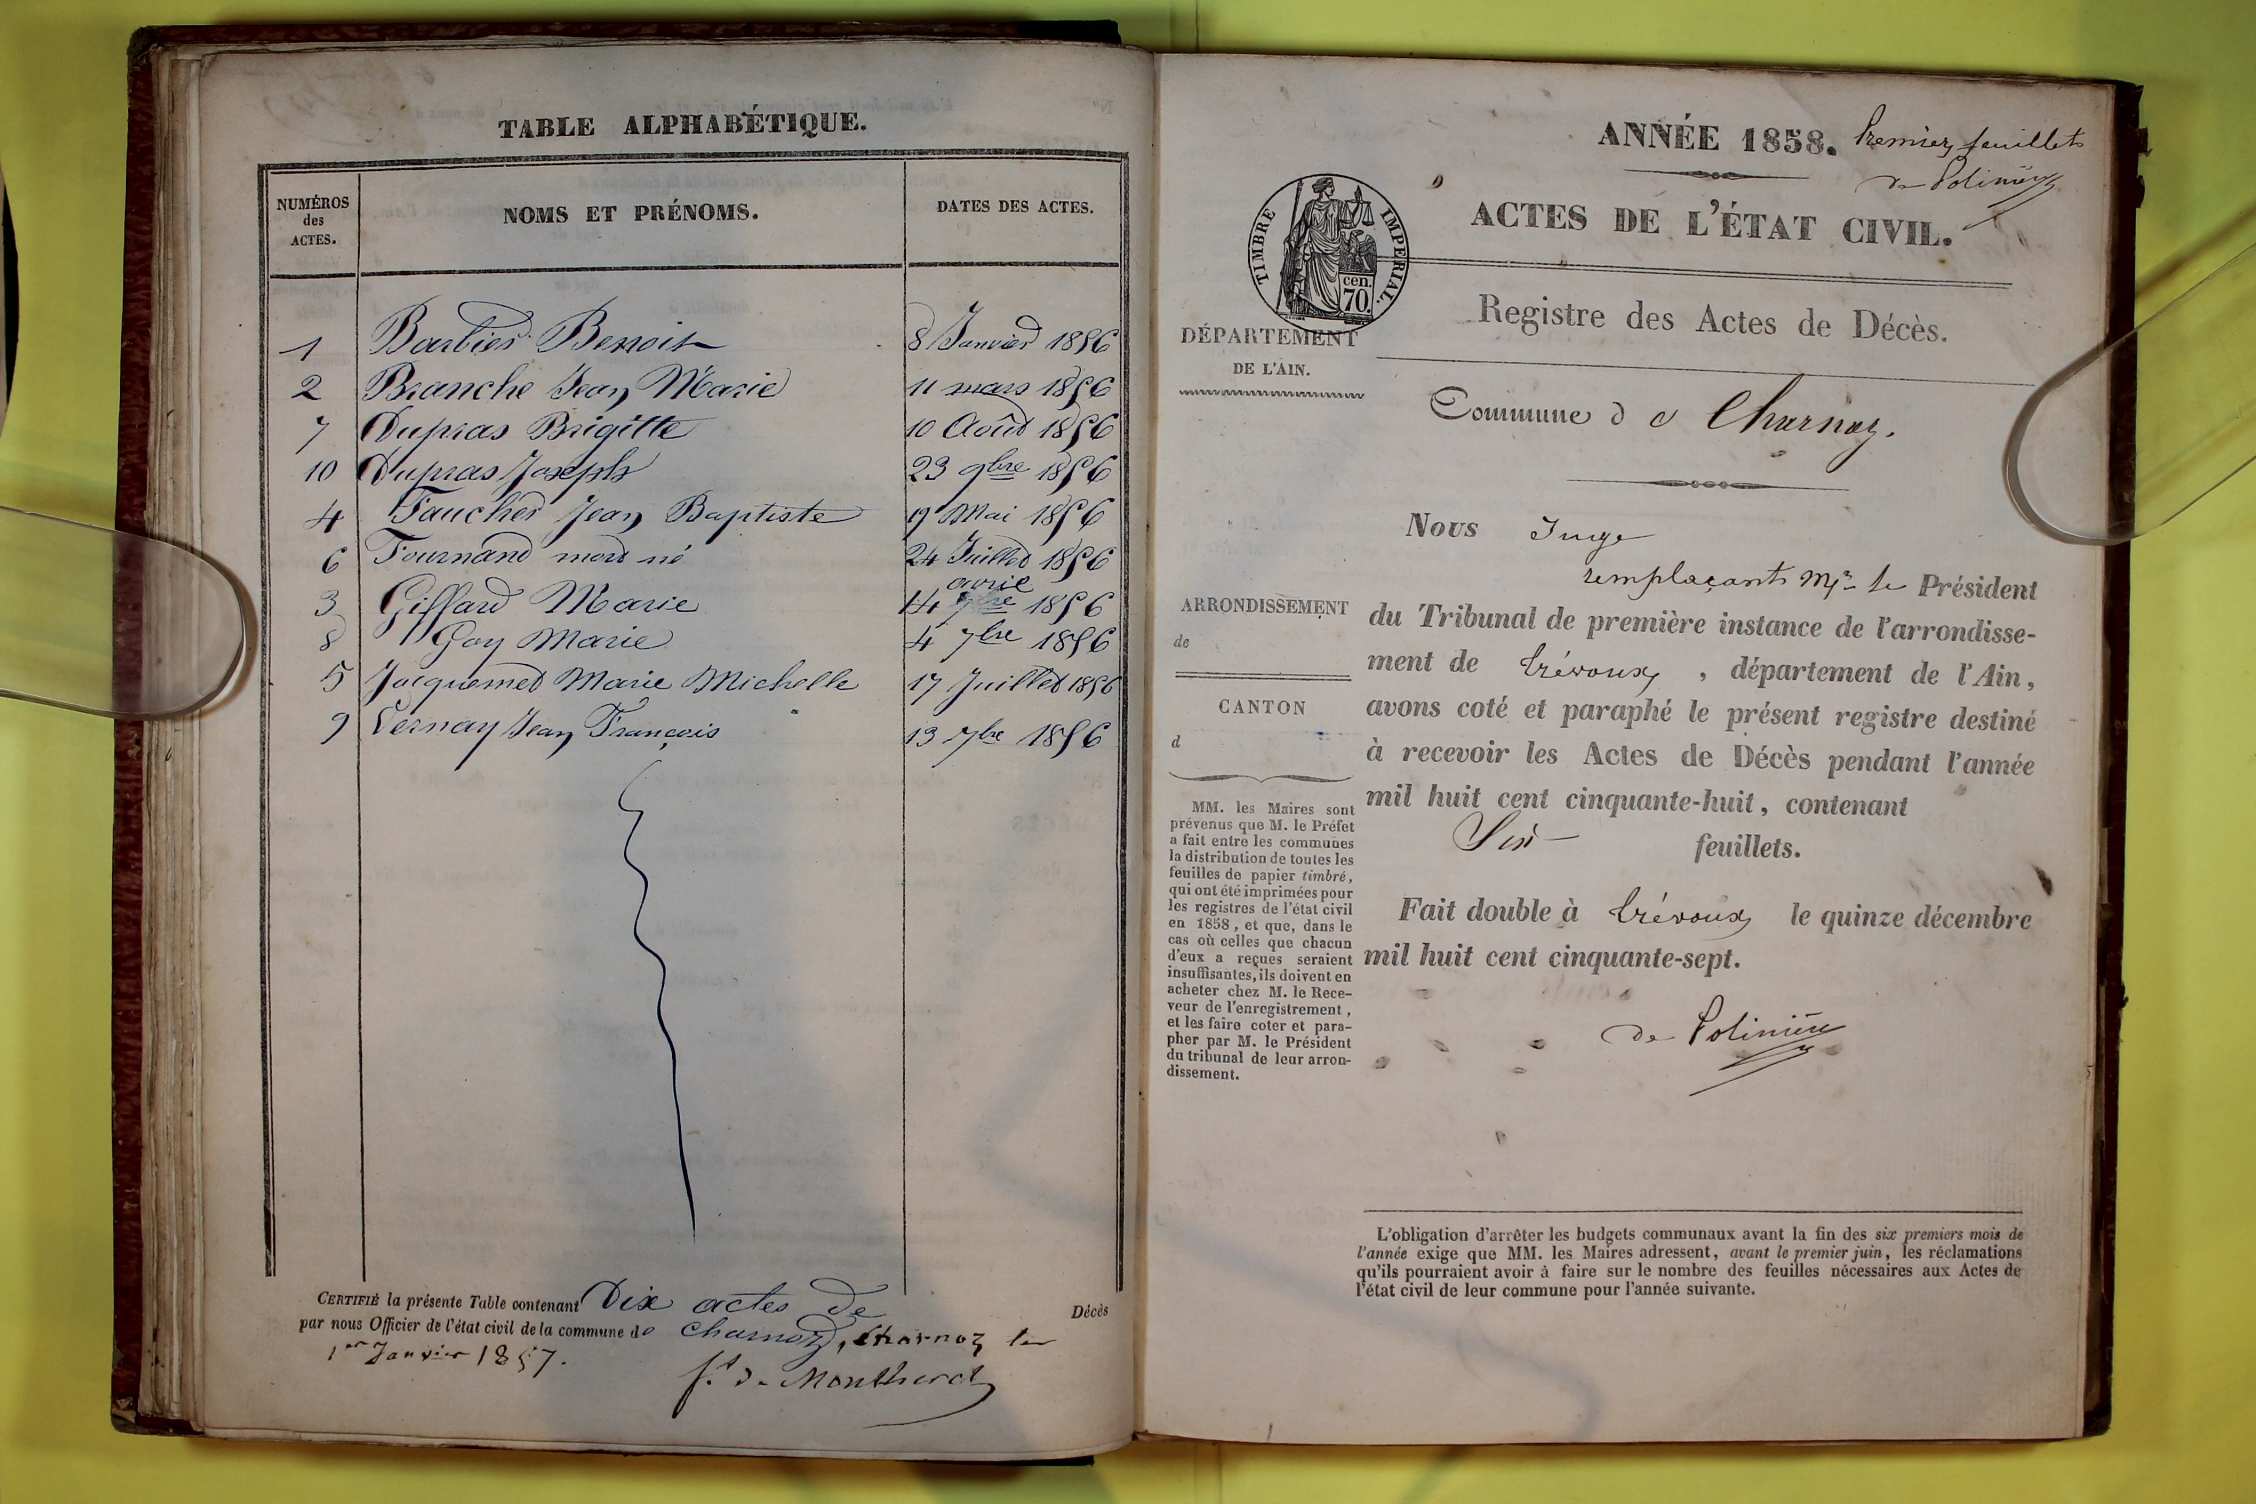 TABLE ALPHABÉTIQUE.
NUMÉROS des ACTES. NOMS ET PRÉNOMS. DATES DES ACTES.
1 Barbier Benoit 8 Janvier 1856
2 Branche Jean Marie 11 mars 1856
7 Dupras Brigitte 10 Août 1856
10 Dupras Joseph 23 9bre 1856
4 Faucher Jean Baptiste 19 Mai 1856
6 Fournand mort né 24 Juillet 1856
avril
3 Giffard Marie 14 1856
8 Goy Marie 4 7bre 1856
5 Jacquemet Marie Michelle 17 Juillet 1856
9 Vernay Jean François 13 7bre 1856
CERTIFIÉ la présente Table contenant Dix actes de Décès
par nous Officier de l'état civil de la commune de Charnoz, Charnoz le
1er Janvier 1857.
f. de Montherot
ANNÉE 1858. Premier feuillet
de Polinière
ACTES DE L'ÉTAT CIVIL.
TIMBRE IMPERIAL.
cen.
70.
Registre des Actes de Décès.
DÉPARTEMENT
DE L'AIN.
Commune de Charnoz.
Nous Juge
remplaçant Mr le Président
du Tribunal de première instance de l'arrondisse-
ment de Trévoux, département de l'Ain,
avons coté et paraphé le présent registre destiné
à recevoir les Actes de Décès pendant l'année
mil huit cent cinquante-huit, contenant
Six feuillets.
Fait double à Trévoux le quinze décembre
mil huit cent cinquante-sept.
de Polinière
ARRONDISSEMENT
de
CANTON
d
MM. les Maires sont
prévenus que M. le Préfet
a fait entre les communes
la distribution de toutes les
feuilles de papier timbré,
qui ont été imprimées pour
les registres de l'état civil
en 1858, et que, dans le
cas où celles que chacun
d'eux a reçues seraient
insuffisantes, ils doivent en
acheter chez M. le Rece-
veur de l'enregistrement,
et les faire coter et para-
pher par M. le Président
du tribunal de leur arron-
dissement.
L'obligation d'arrêter les budgets communaux avant la fin des six premiers mois de
l'année exige que MM. les Maires adressent, avant le premier juin, les réclamations
qu'ils pourraient avoir à faire sur le nombre des feuilles nécessaires aux Actes de
l'état civil de leur commune pour l'année suivante.